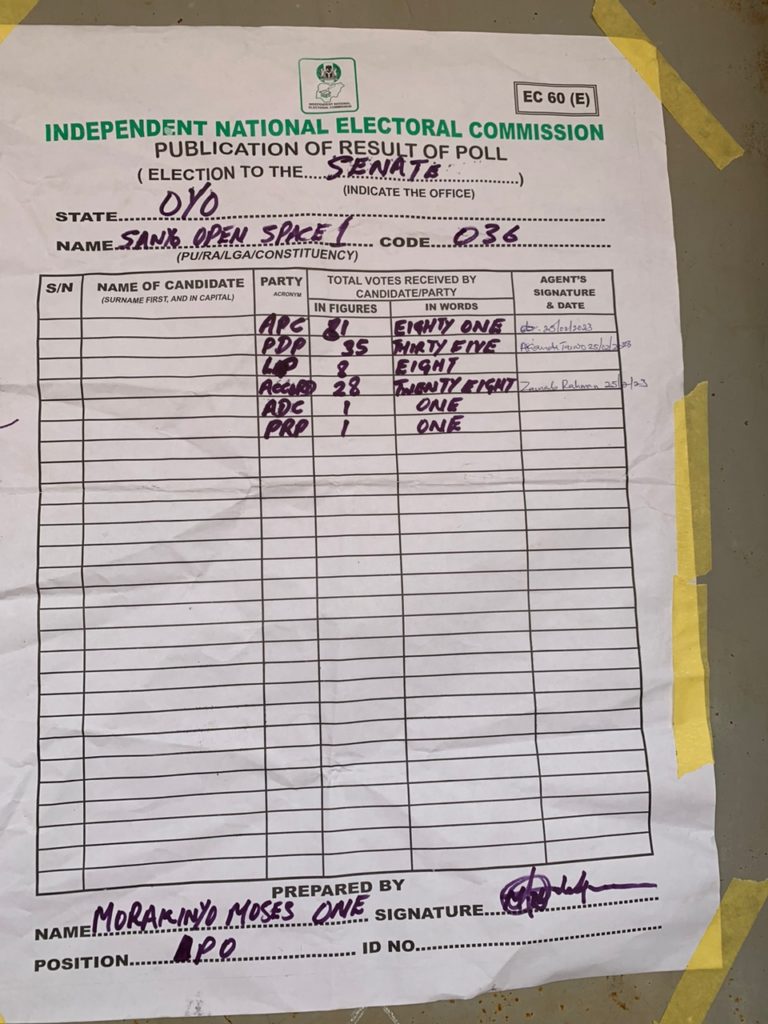 INDEPENDENT NATIONAL ELECTORAL COMMISSION
EC 60 (E)
INDEPENDENT NATIONAL ELECTORAL COMMISSION
PUBLICATION OF RESULT OF POLL
( ELECTION TO THE....SENATE..............)
(INDICATE THE OFFICE)
STATE......OYO......
NAME SANYO OPEN SPACE 1 .... CODE....036....
(PU/RA/LGA/CONSTITUENCY)
S/N NAME OF CANDIDATE (SURNAME FIRST, AND IN CAPITAL) PARTY ACRONYM TOTAL VOTES RECEIVED BY CANDIDATE/PARTY AGENT'S SIGNATURE & DATE
IN FIGURES IN WORDS
APC 81 EIGHTY ONE 25/02/2023
PDP 35 THIRTY FIVE Taiwo 25/02/2023
LP 8 EIGHT
ACCORD 28 TWENTY EIGHT Zainab Rahman 25/2/23
ADC 1 ONE
PRP 1 ONE
PREPARED BY
NAME MORAKINYO MOSES ONE SIGNATURE....
POSITION......PO...... ID NO......